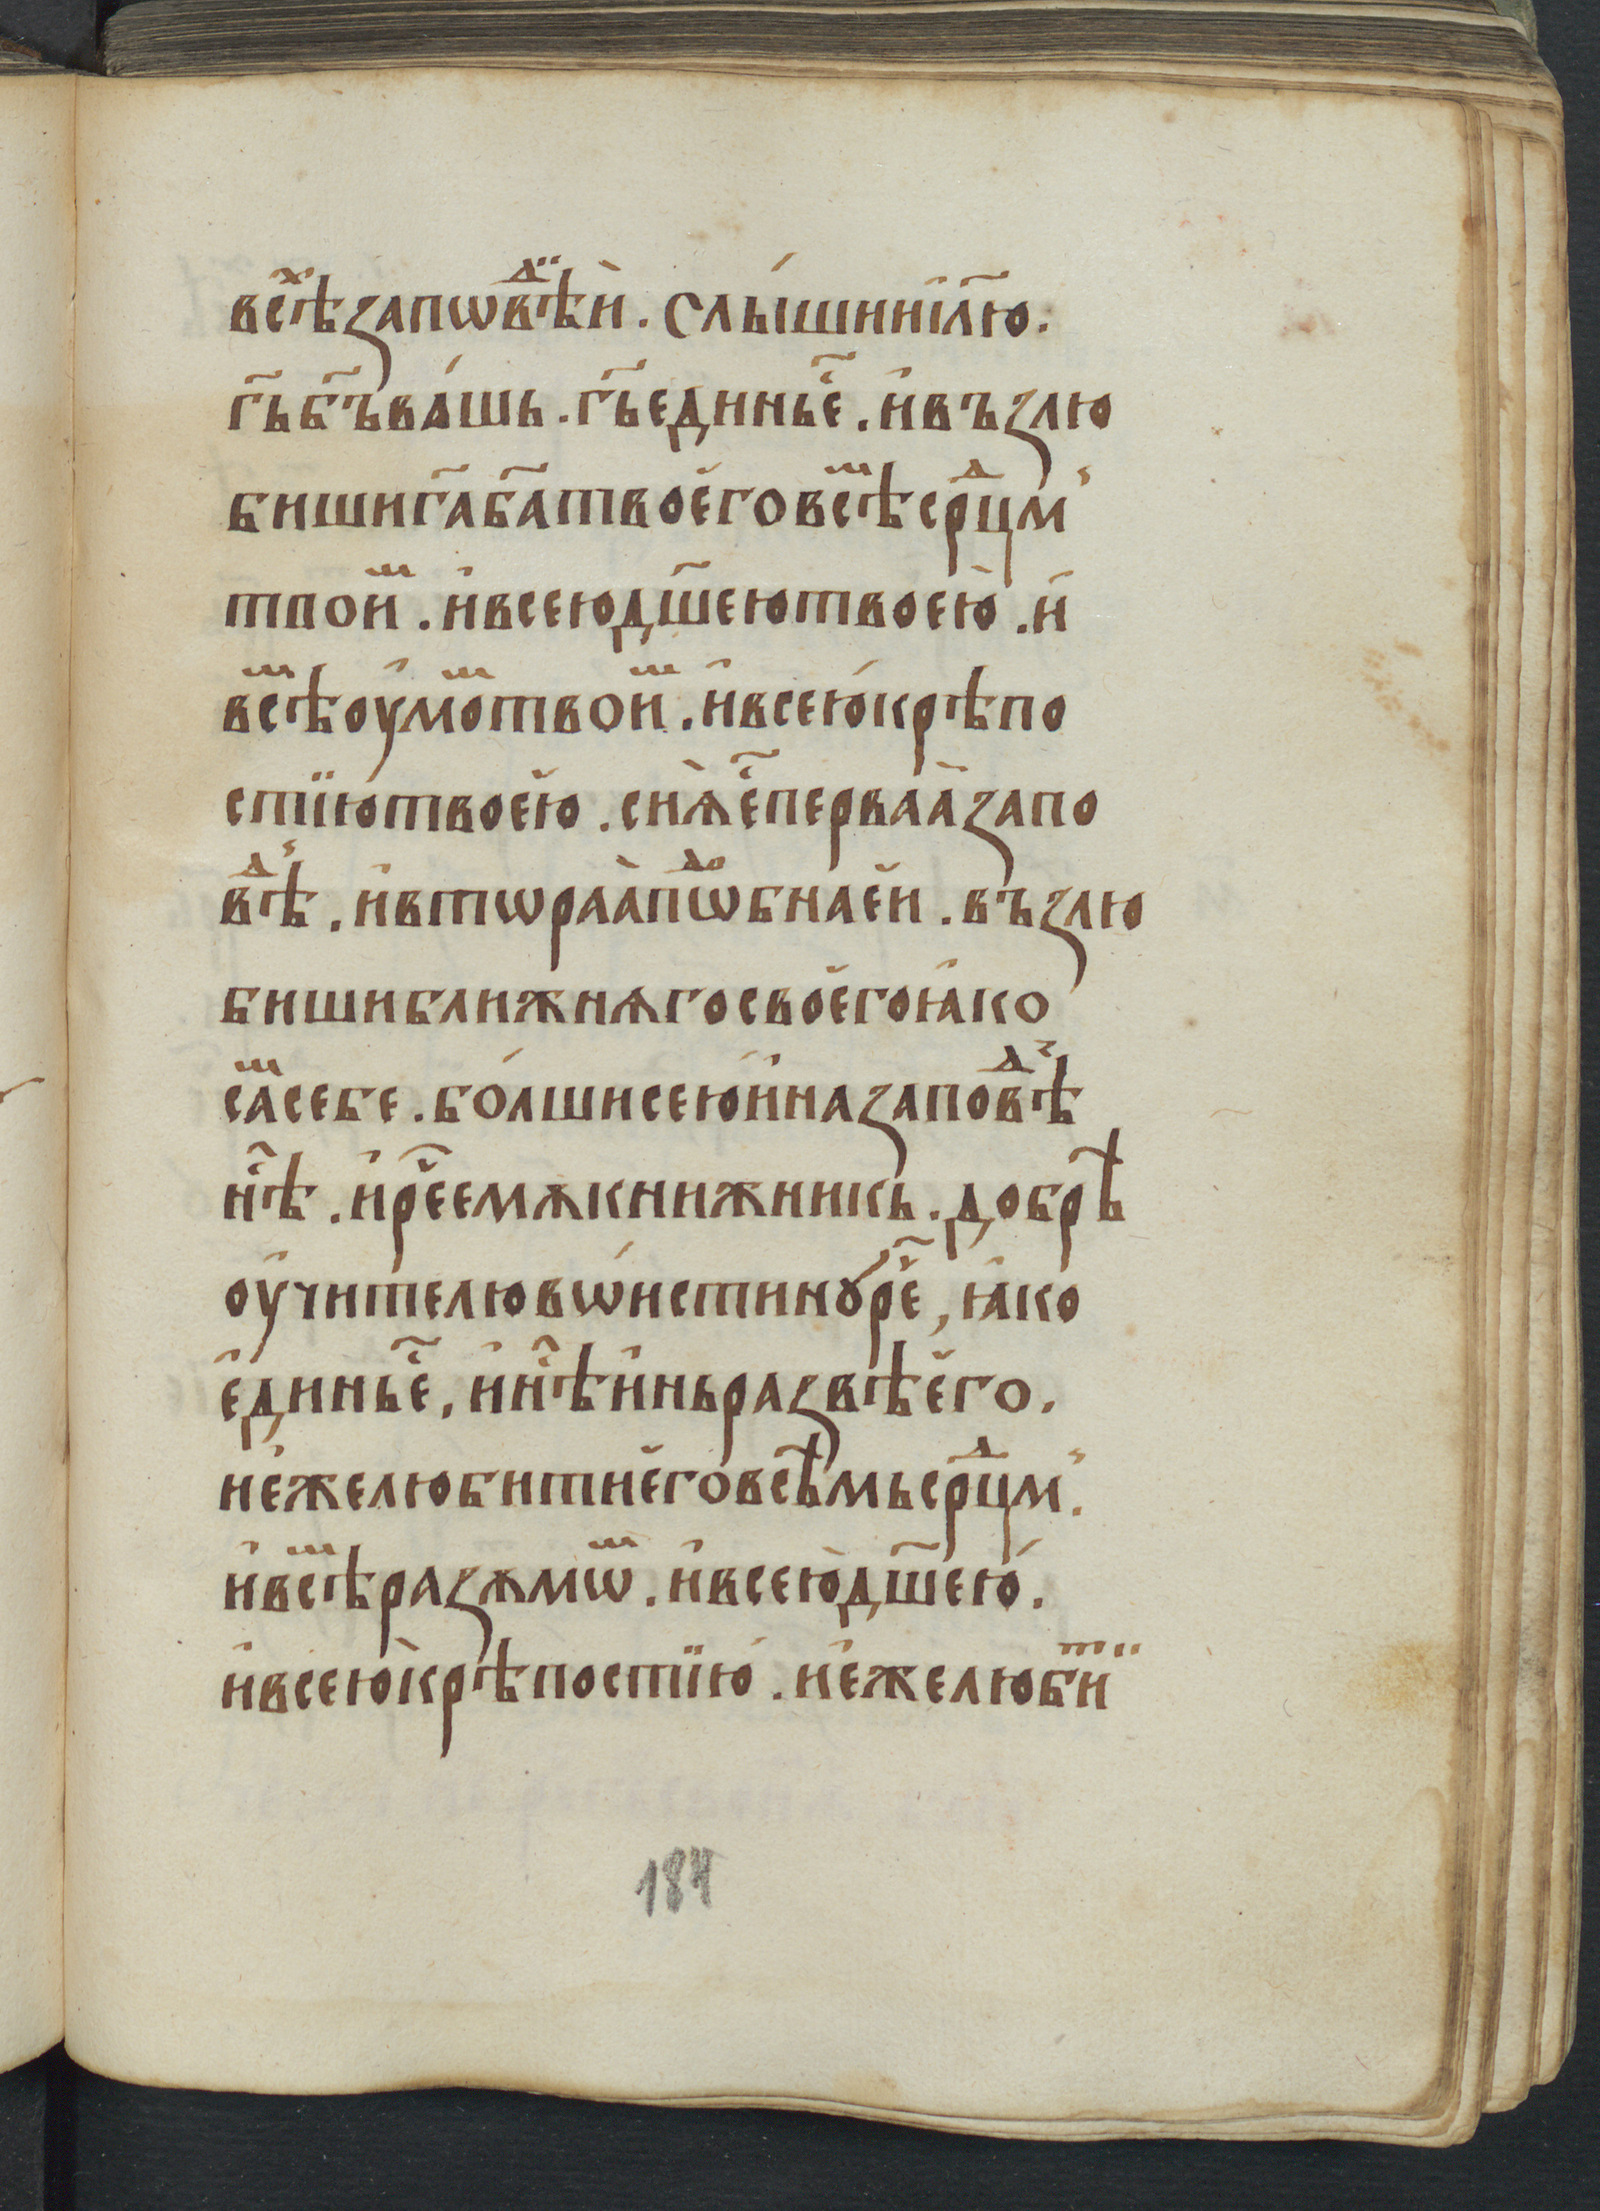 всѣⷯ҇ запѡвѣⷣй҇ . слы́шииі҃лю .
гь҃бъ҃ва́шь . гь҃единье҃ . и҆възлю
бишига҃ба҃твое҆говсѣⷨсрⷣцмⸯ
твоиⷨ . и҆всеюдш҃еютвоею̀ . и҆
всѣⷨоу҆моⷨтвоиⷨ . и҆всею҆крѣпо
стїю҆твоею҆ . сиѧ̀е҃перваа҆запо
вѣⷣⸯ . и҆втѡраа̀пѡⷣбнаей . възлю
бишиближнѧгосвое҆гоꙗ҆ко
саⷨсебе . бо́лшисею҆и҆назаповѣⷣⸯ
нѣ҃ . и҆рече҃емѫкнижникь . добрѣ
оу҆чителювѡ́истинꙋре҃ , ꙗ҆ко
е҆динье҃ , и҆нѣ҃и҆ньразвѣе҆го .
и҆е҆желюбитие҆го̀всѣ҆мьсрⷣцмⸯ .
и҆всѣⷨразѫмѡⷨ . и҆всею̀дш҃ею́ .
и҆всею̀крѣпостїю́ . и҆е҆желюбиⷮ
184